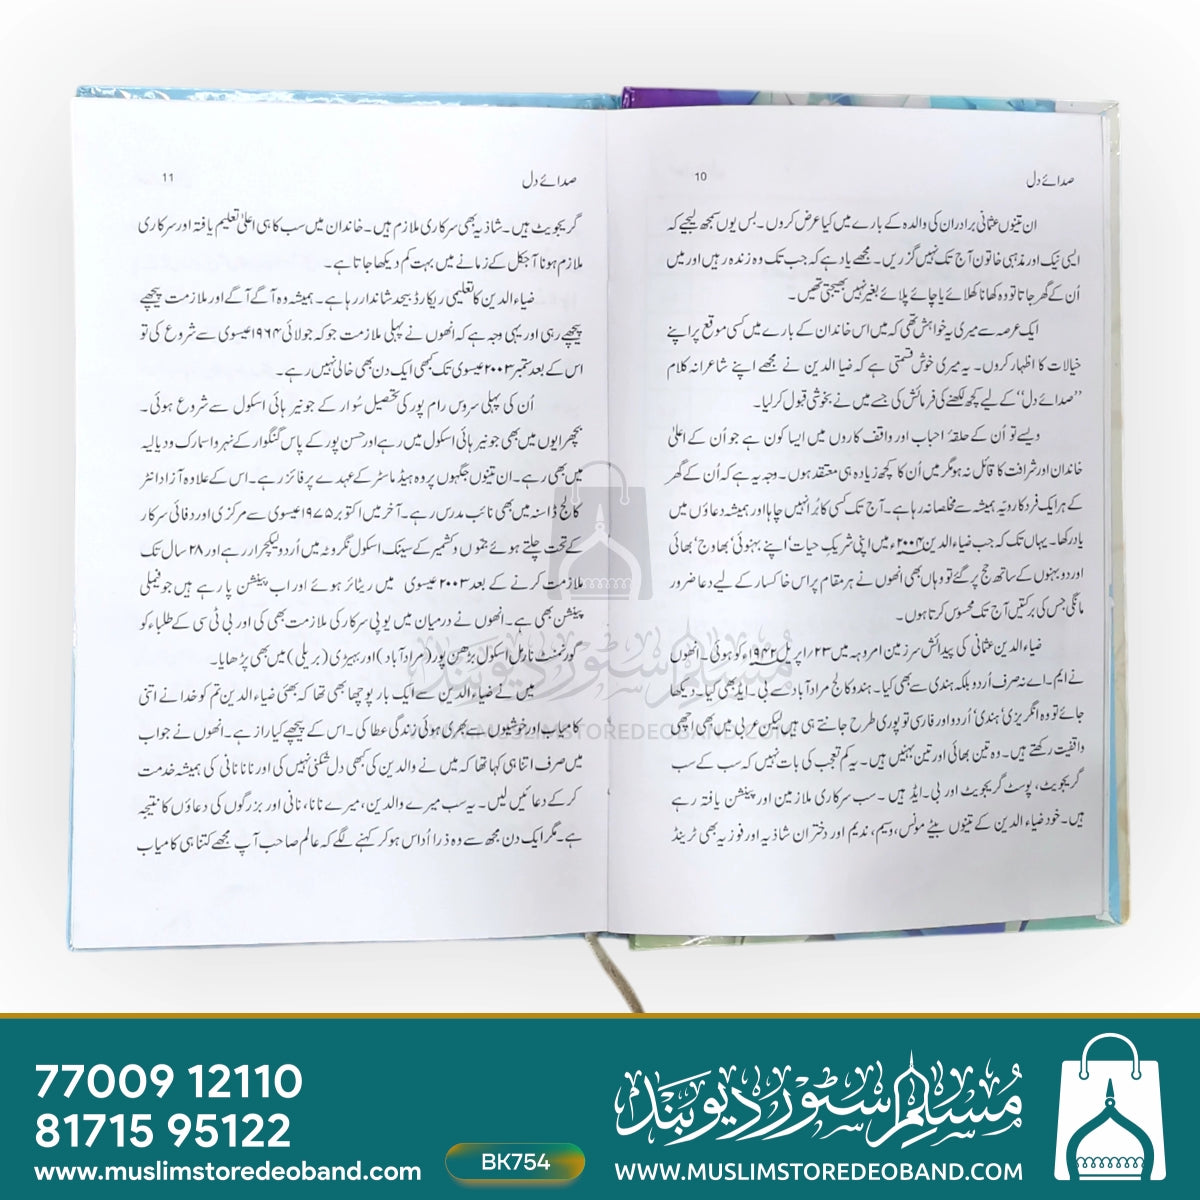 صدائے دل
10
ان تینوں عثمانی برادران کی والدہ کے بارے میں کیا عرض کروں۔ بس یوں سمجھ لیجیے کہ
ایسی نیک اور مذہبی خاتون آج تک نہیں گزریں۔ مجھے یاد ہے کہ جب تک وہ زندہ رہیں اور میں
اُن کے گھر جاتا تو وہ کھانا کھلائے یا چائے پلائے بغیر نہیں بھیجتی تھیں۔
ایک عرصہ سے میری یہ خواہش تھی کہ میں اس خاندان کے بارے میں کسی موقع پر اپنے
خیالات کا اظہار کروں۔ یہ میری خوش قسمتی ہے کہ ضیا الدین نے مجھے اپنے شاعرانہ کلام
’’صدائے دل‘‘ کے لیے کچھ لکھنے کی فرمائش کی جسے میں نے بخوشی قبول کر لیا۔
ویسے تو اُن کے حلقۂ احباب اور واقف کاروں میں ایسا کون ہے جو اُن کے اعلیٰ
خاندان اور شرافت کا قائل نہ ہو مگر میں اُن کا کچھ زیادہ ہی معتقد ہوں۔ وجہ یہ ہے کہ اُن کے گھر
کے ہر ایک فرد کا رویّہ ہمیشہ سے مخلصانہ رہا ہے۔ آج تک کسی کا بُرا نہیں چاہا اور ہمیشہ دعاؤں میں
یاد رکھا۔ یہاں تک کہ جب ضیاء الدین ۲۰۰۴ء میں اپنی شریکِ حیات، اپنے بہنوئی، بھاوج، بھائی
اور دو بہنوں کے ساتھ حج پر گئے تو وہاں بھی انھوں نے ہر مقام پر اس خاکسار کے لیے دعا ضرور
مانگی جس کی برکتیں آج تک محسوس کرتا ہوں۔
ضیاء الدین عثمانی کی پیدائش سرزمین امروہہ میں ۲۳/اپریل ۱۹۴۲ء کو ہوئی۔ انھوں
نے ایم۔اے نہ صرف اُردو بلکہ ہندی سے بھی کیا۔ ہندو کالج مراد آباد سے بی۔ ایڈ بھی کیا۔ دیکھا
جائے تو وہ انگریزی، ہندی، اُردو اور فارسی تو پوری طرح جانتے ہی ہیں لیکن عربی میں بھی اچھی
واقفیت رکھتے ہیں۔ وہ تین بھائی اور تین بہنیں ہیں۔ یہ کم تعجب کی بات نہیں کہ سب کے سب
گریجویٹ، پوسٹ گریجویٹ اور بی۔ ایڈ ہیں۔ سب سرکاری ملازمین اور پینشن یافتہ رہے
ہیں۔ خود ضیاء الدین کے تینوں بیٹے مونس، وسیم، ندیم اور دختران شاذیہ اور فوزیہ بھی ٹرینڈ
صدائے دل
11
گریجویٹ ہیں۔ شاذیہ بھی سرکاری ملازم ہیں۔ خاندان میں سب کا ہی اعلیٰ تعلیم یافتہ اور سرکاری
ملازم ہونا آجکل کے زمانے میں بہت کم دیکھا جاتا ہے۔
ضیاء الدین کا تعلیمی ریکارڈ بیحد شاندار رہا ہے۔ ہمیشہ وہ آگے آگے اور ملازمت پیچھے
پیچھے رہی اور یہی وجہ ہے کہ انھوں نے پہلی ملازمت جو کہ جولائی ۱۹۶۴ عیسوی سے شروع کی تو
اس کے بعد ستمبر ۲۰۰۳ عیسوی تک کبھی ایک دن بھی خالی نہیں رہے۔
اُن کی پہلی سروس رام پور کی تحصیل سُوار کے جونیر ہائی اسکول سے شروع ہوئی۔
بچھرایوں میں بھی جونیر ہائی اسکول میں رہے اور حسن پور کے پاس گنگوار کے نہرو اسمارک ودیالیہ
میں بھی رہے۔ ان تینوں جگہوں پر وہ ہیڈ ماسٹر کے عہدے پر فائز رہے۔ اس کے علاوہ آزاد انٹر
کالج ڈاسنہ میں بھی نائب مدرس رہے۔ آخر میں اکتوبر ۱۹۷۵ عیسوی سے مرکزی اور دفائی سرکار
کے تحت چلتے ہوئے جموں و کشمیر کے سینک اسکول نگروٹہ میں اُردو لیکچرار رہے اور ۲۸ سال تک
ملازمت کرنے کے بعد ۲۰۰۳ عیسوی میں ریٹائر ہوئے اور اب پینشن پا رہے ہیں جو فیملی
پینشن بھی ہے۔ انھوں نے درمیان میں یو پی سرکار کی ملازمت بھی کی اور بی ٹی سی کے طلباء کو
گورنمنٹ نارمل اسکول بڑھن پور (مراد آباد) اور بہیڑی (بریلی) میں بھی پڑھایا۔
میں نے ضیاء الدین سے ایک بار پوچھا بھی تھا کہ بھئی ضیاء الدین تم کو خدا نے اتنی
کامیاب اور خوشیوں سے بھری ہوئی زندگی عطا کی۔ اس کے پیچھے کیا راز ہے۔ انھوں نے جواب
میں صرف اتنا ہی کہا تھا کہ میں نے والدین کی کبھی دل شکنی نہیں کی اور نانا نانی کی ہمیشہ خدمت
کر کے دعائیں لیں۔ یہ سب میرے والدین، میرے نانا، نانی اور بزرگوں کی دعاؤں کا نتیجہ
ہے۔ مگر ایک دن مجھ سے وہ ذرا اُداس ہو کر کہنے لگے کہ عالم صاحب آپ مجھے کتنا ہی کامیاب
مُسلم سٹور دیوبند
WWW.MUSLIMSTOREDEOBAND.COM
77009 12110
81715 95122
www.muslimstoredeoband.com
BK754
مُسلم سٹور دیوبند
WWW.MUSLIMSTOREDEOBAND.COM